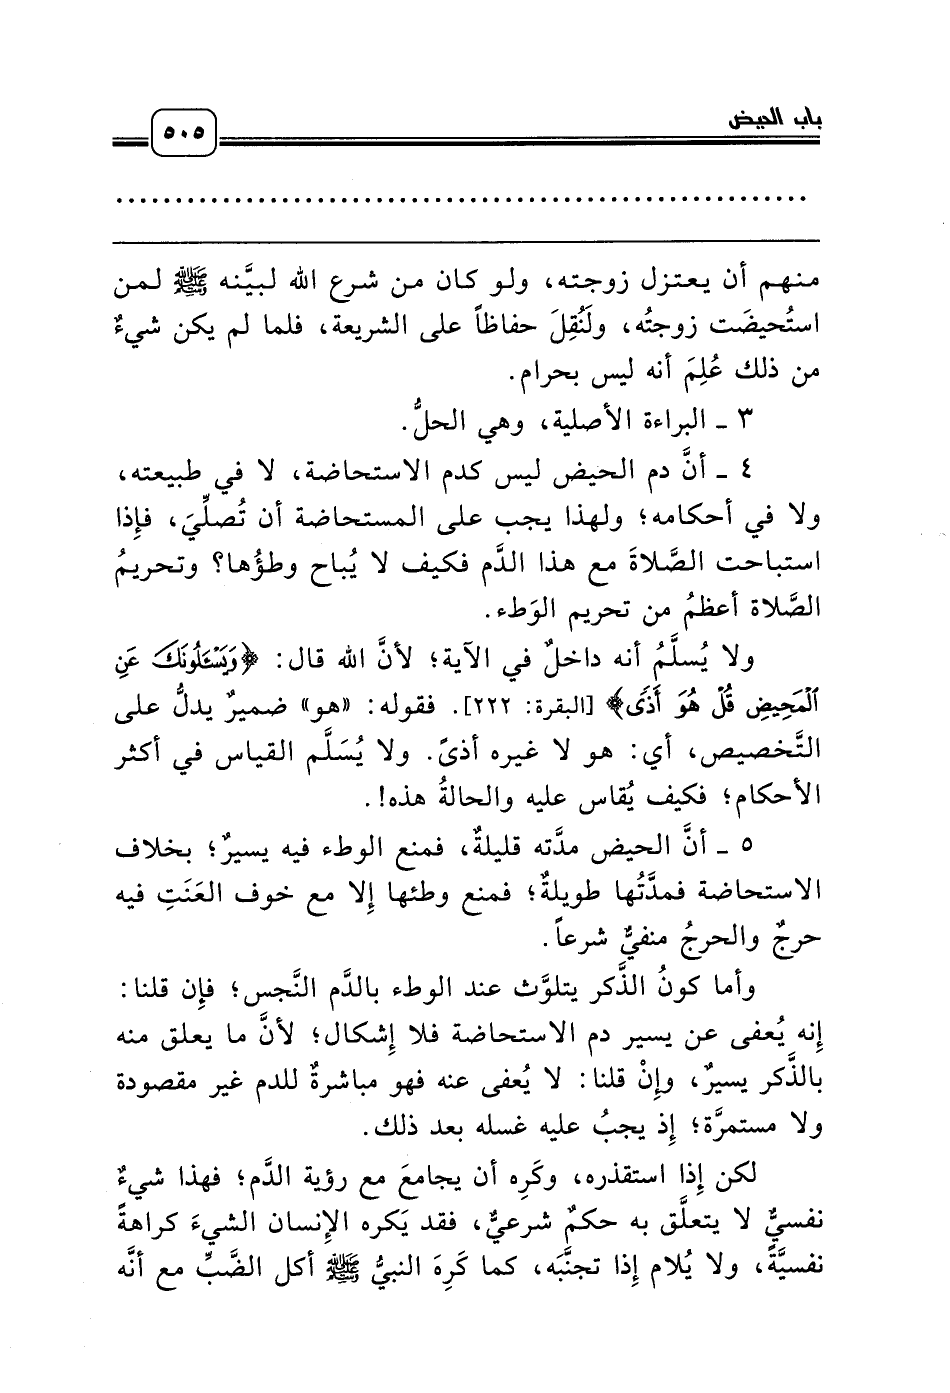 باب الحيض
٥٠٥
منهم أن يعتزل زوجته، ولو كان من شرع الله لبيَّنه ﷺ لمن
استُحيضَت زوجتُه، ولَنُقِلَ حفاظاً على الشريعة، فلما لم يكن شيءٌ
من ذلك عُلِمَ أنه ليس بحرام.
٣ ـ البراءة الأصلية، وهي الحلُّ.
٤ ـ أنَّ دم الحيض ليس كدم الاستحاضة، لا في طبيعته،
ولا في أحكامه؛ ولهذا يجب على المستحاضة أن تُصلِّيَ، فإِذا
استباحت الصَّلاةَ مع هذا الدَّم فكيف لا يُباح وطؤُها؟ وتحريمُ
الصَّلاة أعظمُ من تحريم الوَطء.
ولا يُسلَّمُ أنه داخلٌ في الآية؛ لأنَّ الله قال: ﴿وَيَسْـَٔلُونَكَ عَنِ
ٱلْمَحِيضِ قُلْ هُوَ أَذًى﴾ [البقرة: ٢٢٢]. فقوله: «هو» ضميرٌ يدلُّ على
التَّخصيص، أي: هو لا غيره أذىً. ولا يُسَلَّم القياس في أكثر
الأحكام؛ فكيف يُقاس عليه والحالةُ هذه!.
٥ ـ أنَّ الحيض مدَّته قليلةٌ، فمنع الوطء فيه يسيرٌ؛ بخلاف
الاستحاضة فمدَّتُها طويلةٌ؛ فمنع وطئها إِلا مع خوف العَنَتِ فيه
حرجٌ والحرجُ منفيٌّ شرعاً.
وأما كونُ الذَّكر يتلوَّث عند الوطء بالدَّم النَّجس؛ فإِن قلنا:
إِنه يُعفى عن يسير دم الاستحاضة فلا إِشكال؛ لأنَّ ما يعلق منه
بالذَّكر يسيرٌ، وإِنْ قلنا: لا يُعفى عنه فهو مباشرةٌ للدم غير مقصودة
ولا مستمرَّة؛ إِذ يجبُ عليه غسله بعد ذلك.
لكن إِذا استقذره، وكَرِه أن يجامعَ مع رؤية الدَّم؛ فهذا شيءٌ
نفسيٌّ لا يتعلَّق به حكمٌ شرعيٌّ، فقد يَكره الإِنسان الشيءَ كراهةً
نفسيَّةً، ولا يُلام إِذا تجنَّبَه، كما كَرِهَ النبيُّ ﷺ أكل الضَّبِّ مع أنَّه